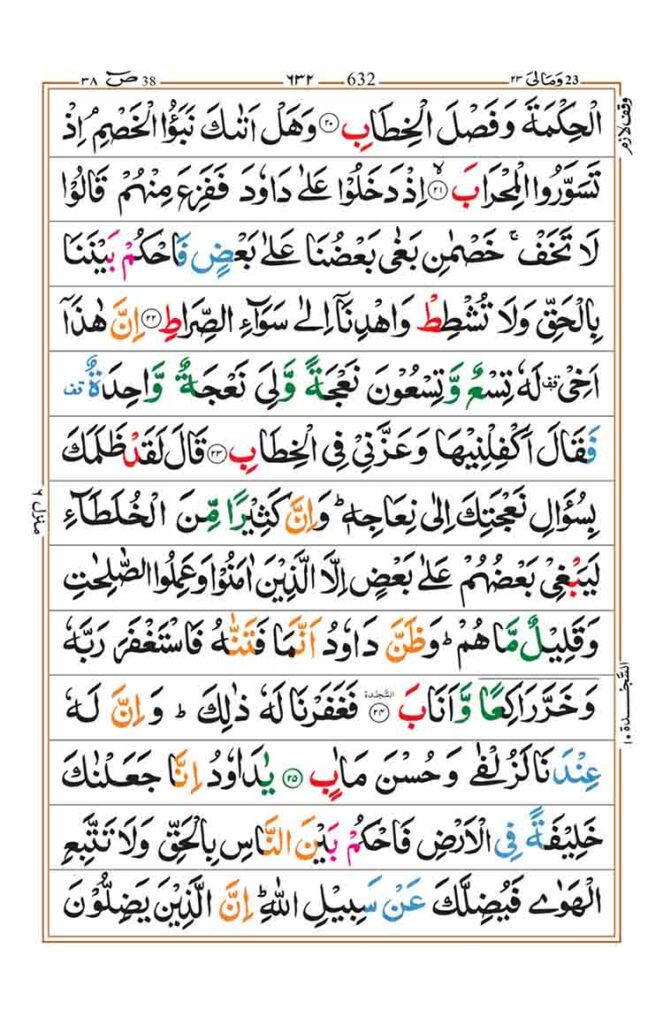 ٣٨ صٓ 38 ٦٣٢ 632 ٢٣ وَمَالِیَ 23
الْحِكْمَةَ وَفَصْلَ الْخِطَابِ ﴿٢٠﴾ وَهَلْ اَتٰىكَ نَبَؤُا الْخَصْمِ ۘ اِذْ
وقف لازم
تَسَوَّرُوا الْمِحْرَابَ ۙ﴿٢١﴾ اِذْ دَخَلُوْا عَلٰى دَاوٗدَ فَفَزِعَ مِنْهُمْ قَالُوْا
لَا تَخَفْ ۚ خَصْمٰنِ بَغٰى بَعْضُنَا عَلٰى بَعْضٍ فَاحْكُمْ بَيْنَنَا
بِالْحَقِّ وَلَا تُشْطِطْ وَاهْدِنَاۤ اِلٰى سَوَآءِ الصِّرَاطِ ﴿٢٢﴾ اِنَّ هٰذَاۤ
اَخِىْ قف لَهٗ تِسْعٌ وَّتِسْعُوْنَ نَعْجَةً وَّلِىَ نَعْجَةٌ وَّاحِدَةٌ قف
فَقَالَ اَكْفِلْنِيْهَا وَعَزَّنِىْ فِى الْخِطَابِ ﴿٢٣﴾ قَالَ لَقَدْ ظَلَمَكَ
بِسُؤَالِ نَعْجَتِكَ اِلٰى نِعَاجِهٖ ؕ وَاِنَّ كَثِيْرًا مِّنَ الْخُلَطَآءِ
منزل ٦
لَيَبْغِىْ بَعْضُهُمْ عَلٰى بَعْضٍ اِلَّا الَّذِيْنَ اٰمَنُوْا وَعَمِلُوا الصّٰلِحٰتِ
وَقَلِيْلٌ مَّا هُمْ ؕ وَظَنَّ دَاوٗدُ اَنَّمَا فَتَنّٰهُ فَاسْتَغْفَرَ رَبَّهٗ
وَخَرَّ رَاكِعًا وَّاَنَابَ السَّجْدَة ﴿٢٤﴾ فَغَفَرْنَا لَهٗ ذٰلِكَ ؕ وَاِنَّ لَهٗ
السَّجْدَة ١٠
عِنْدَنَا لَزُلْفٰى وَحُسْنَ مَاٰبٍ ﴿٢٥﴾ يٰدَاوٗدُ اِنَّا جَعَلْنٰكَ
خَلِيْفَةً فِى الْاَرْضِ فَاحْكُمْ بَيْنَ النَّاسِ بِالْحَقِّ وَلَا تَتَّبِعِ
الْهَوٰى فَيُضِلَّكَ عَنْ سَبِيْلِ اللّٰهِ ؕ اِنَّ الَّذِيْنَ يَضِلُّوْنَ